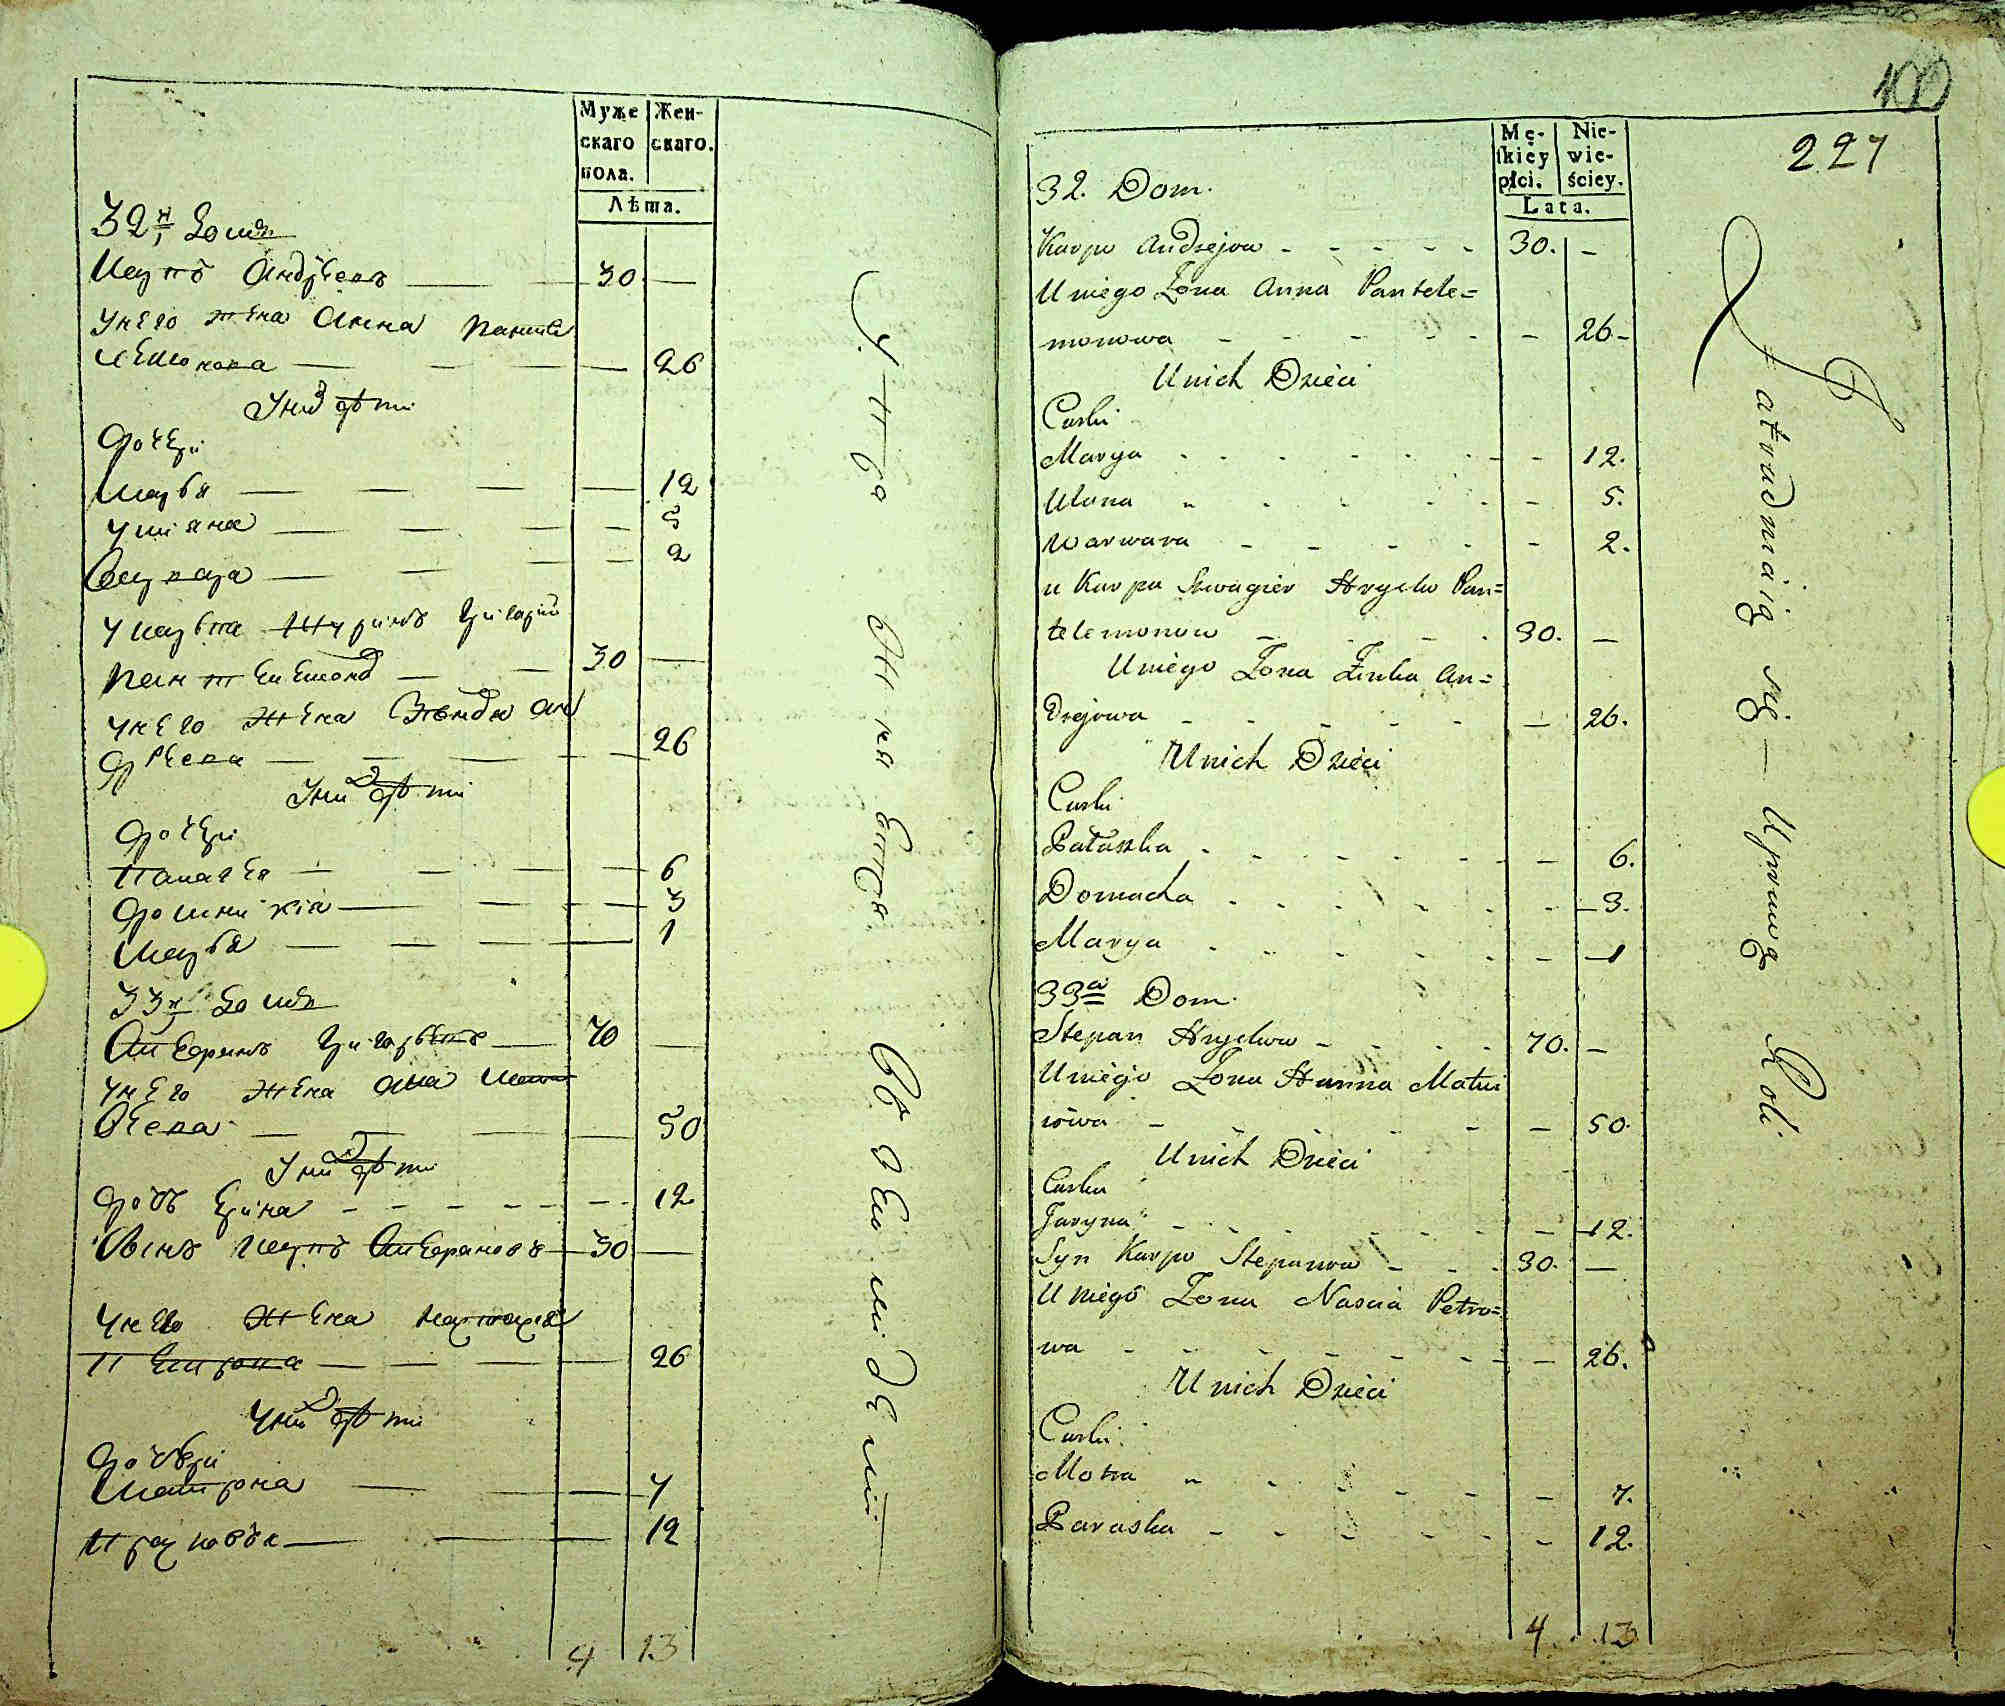 Муже
скаго
пола.
Жен-
скаго.
Лѣта.
32й Домъ
Карпъ Андрѣевъ — 30 —
У него жена Анна Панте
лемонова — 26
У них дѣти
Дочери
Марья — 12
Ульяна — 5
Варвара — 2
У Карпа Шуринъ Григорій
Пантелемонов — 30 —
У него жена Зѣновія Ан
дрѣева — 26
У них дѣти
Дочери
Палагея — 6
Домникія — 3
Марья — 1
33й Домъ
Стефанъ Григорьевъ — 70 —
У него жена Анна Матв
ѣева — 50
У них дѣти
Дочь Ирина — 12
Сынъ Карпъ Стефановъ — 30 —
У него жена Настасія
Петрова — 26
У них дѣти
Дочери
Матрона — 7
Прасковья — 12
4 13
Упражняется въ земледелии
100
227
Mę-
skiey
płci.
Nie-
wie-
ściey.
Lata.
32. Dom.
Karpo Andrejow - - - - - 30. -
U niego Żona Anna Pantele=
monowa - - - - - - 26 -
U nich Dzieci
Curki
Marya - - - - - - 12.
Ulana - - - - - - 5.
Warwara - - - - - - 2.
u Karpa Szwagier Hryćko Pan=
telemonow - - - - 30. -
U niego Żona Zinka An=
drejowa - - - - - - 26.
U nich Dzieci
Curki
Pałaszka - - - - - - 6.
Domacha - - - - - - 3.
Marya - - - - - - 1
33a Dom.
Stepan Hryćkow - - - - 70. -
U niego Żona Hanna Matwi
iówa - - - - - - 50.
U nich Dzieci
Curka
Jaryna - - - - - - 12.
Syn Karpo Stepanow - - - 30. -
U niego Żona Naścia Petro=
wa - - - - - - 26.
U nich Dzieci
Curki
Motra - - - - - - 7.
Paraska - - - - - - 12.
4. 13
Zatrudniaią się — Uprawą Roli